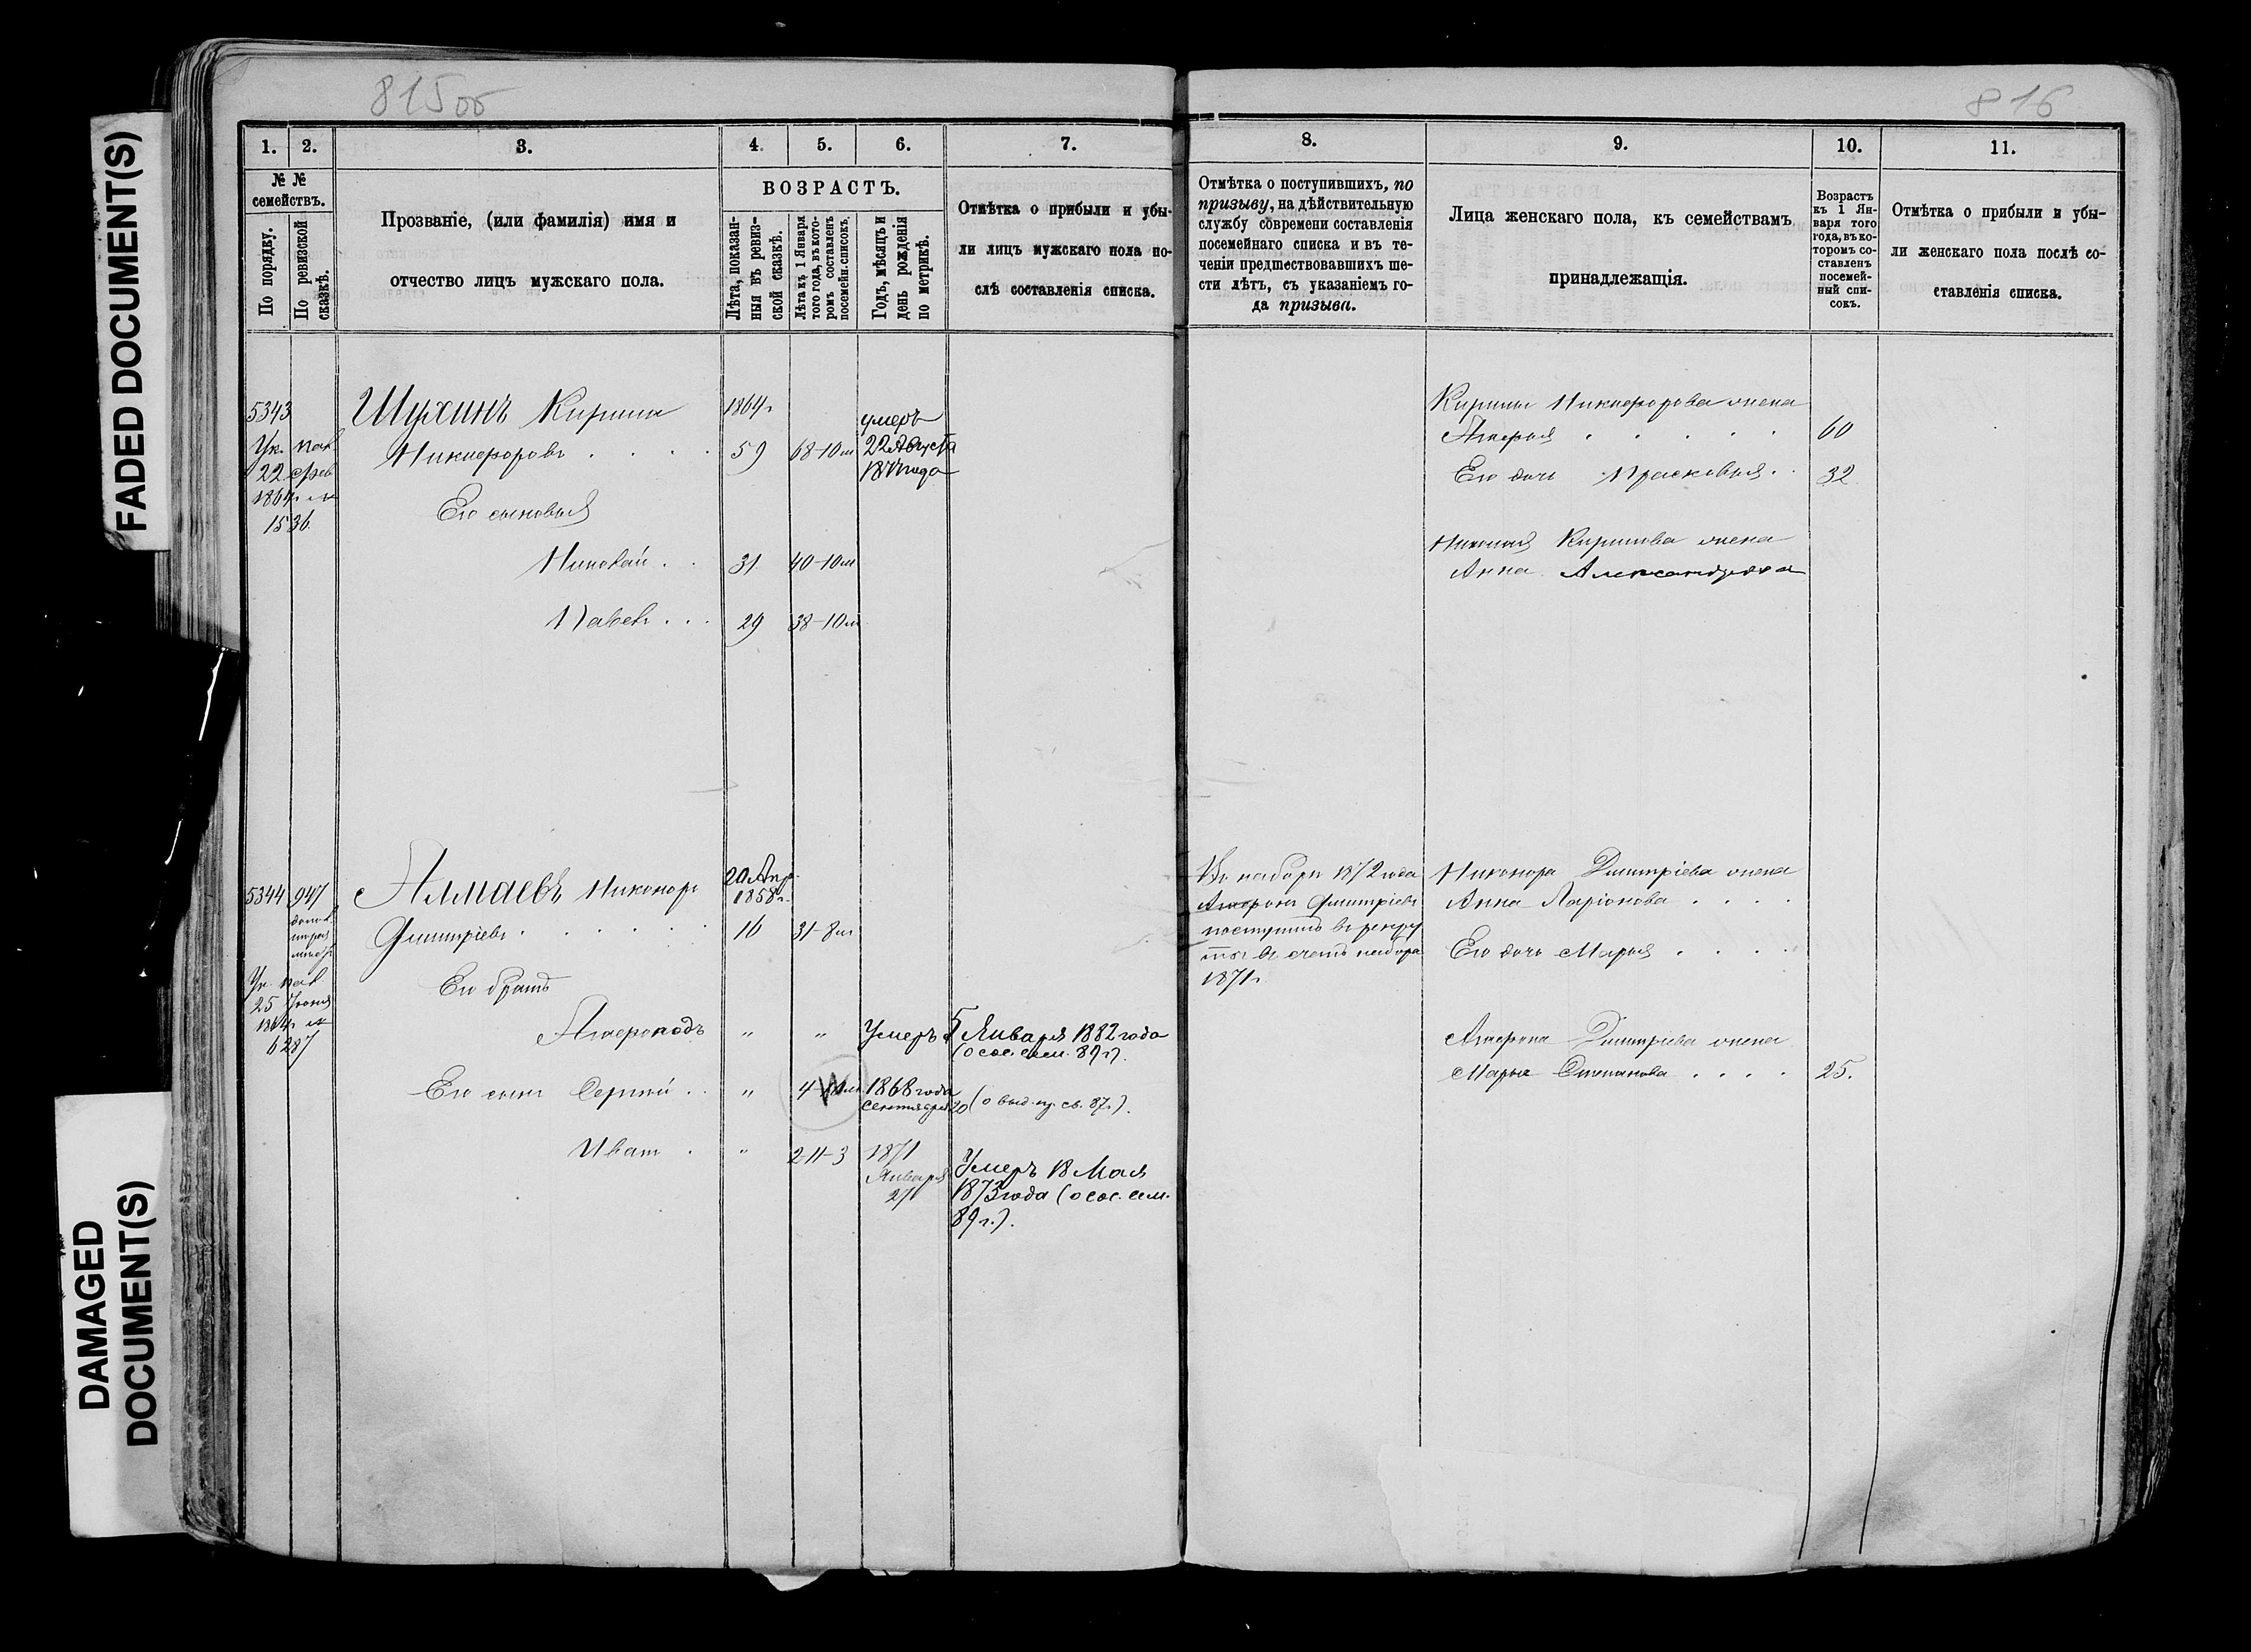 FADED DOCUMENT(S)
DAMAGED
DOCUMENT(S)
815об
816
1.
2.
3.
4.
5.
6.
7.
8.
9.
10.
11.
№ №
семействъ.
По порядку.
По ревизской
сказкѣ.
Прозваніе, (или фамилія) имя и
отчество лицъ мужскаго пола.
ВОЗРАСТЪ.
Лѣта, показан-
ныя въ ревиз-
ской сказкѣ.
Лѣта къ 1 Января
того года, въ кото-
ромъ составленъ
посемейн. списокъ.
Годъ, мѣсяцъ и
день рожденія
по метрикѣ.
Отмѣтка о прибыли и убы-
ли лицъ мужскаго пола по-
слѣ составленія списка.
Отмѣтка о поступившихъ, по
призыву, на дѣйствительную
службу современи составленія
посемейнаго списка и въ те-
ченіи предшествовавшихъ ше-
сти лѣтъ, съ указаніемъ го-
да призыва.
Лица женскаго пола, къ семействамъ
принадлежащія.
Возрастъ
къ 1 Ян-
варя того
года, въ ко-
торомъ со-
ставленъ
посемей-
ный спи-
сокъ.
Отмѣтка о прибыли и убы-
ли женскаго пола послѣ со-
ставленія списка.
5343
Ук. пал.
22 Фев.
1864 г. №
1536.
Шухинъ Кирила
Никифоровъ
1864 г.
59
68-10 м
умеръ
22 Августа
Его сыновья
Николай
31
40-10 м
Павелъ
29
38-10 м
Кирилы Никифорова жена
60
Его дочь Прасковья
32
Николая Кирилова жена
Анна Александрова
5344
947
Ук. пал.
25 Іюня
1864 г. №
6287
Алмаевъ Никоноръ
Дмитріевъ
20 Апр.
1858 г.
16
31-8 м
Его братъ
"
"
Умеръ 5 Января 1882 года
(о сос. сем. 89 г.).
Его сынъ Сергѣй
"
1868 года
Сентября 20 (о выд. пр. св. 87 г.).
Иванъ
"
2-11-3
1871
Января
27
Умеръ 18 Мая
1873 года (о сос. сем.
89 г.).
Въ наборъ 1872 года
Дмитріевъ
поступилъ въ рекру
ты въ счетъ набора
1871 г.
Никонора Дмитріева жена
Анна Ларіонова
Его дочь Марья
Дмитріева жена
Марья Степанова
25.